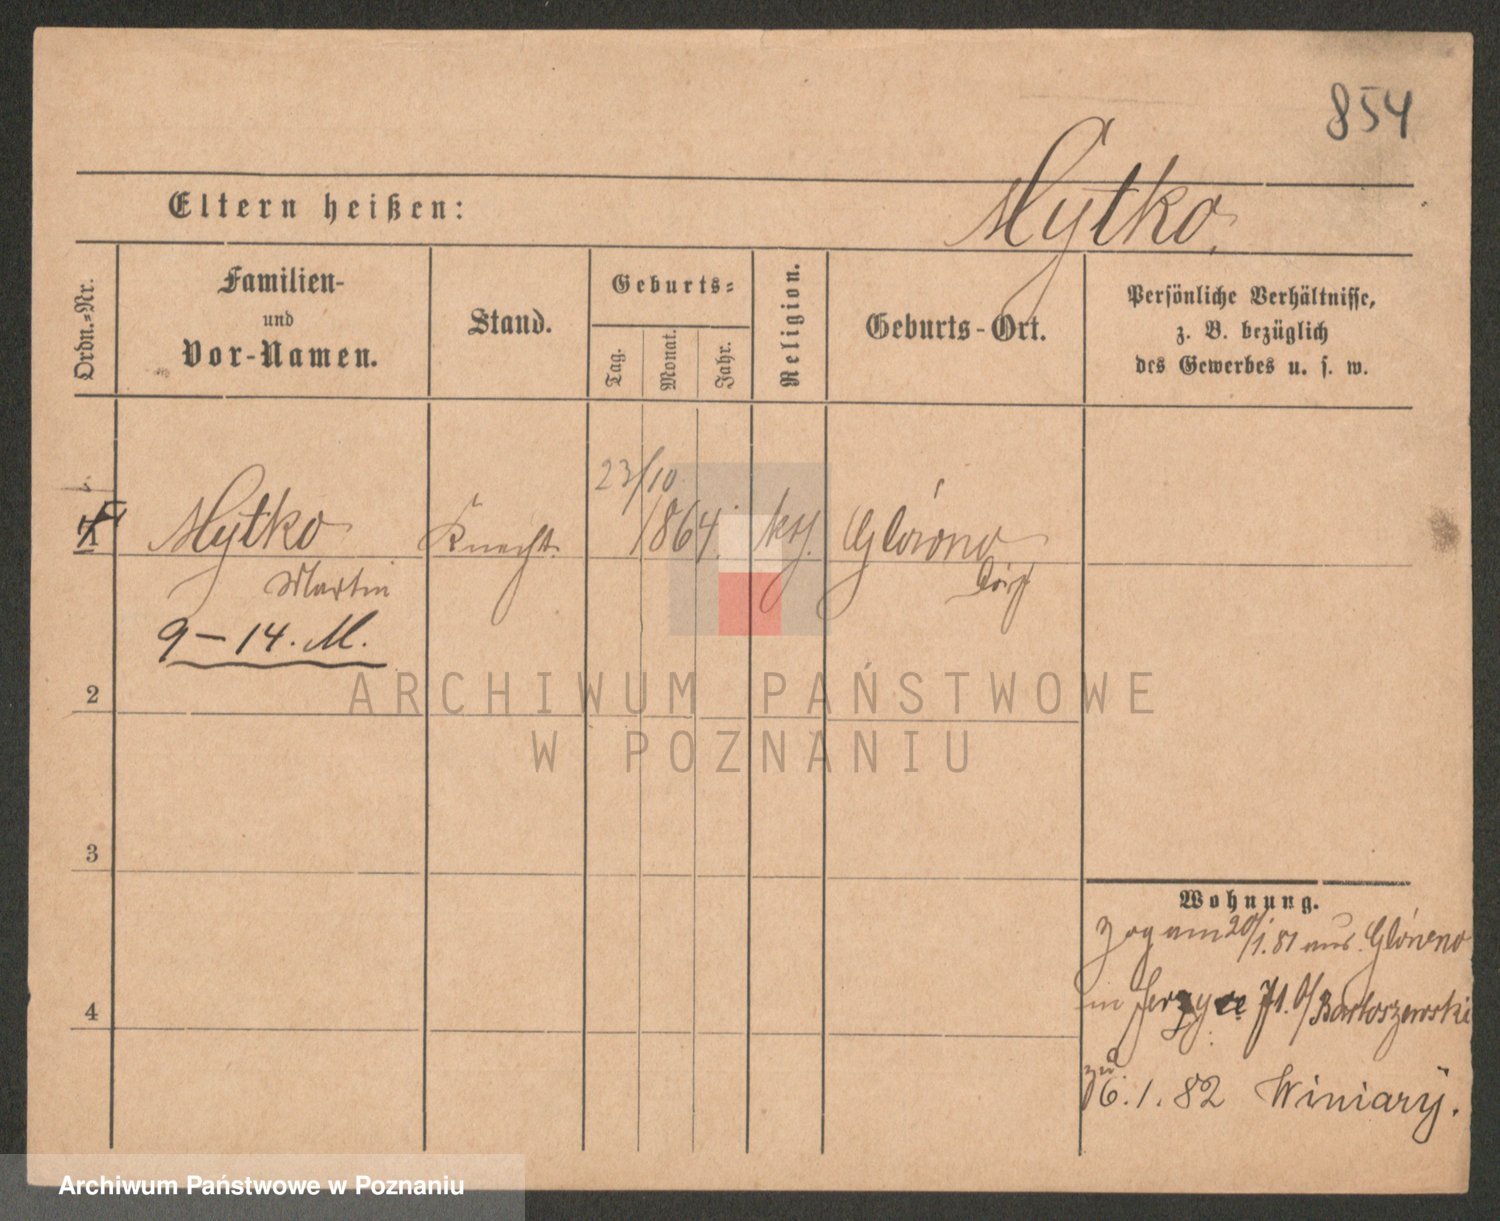 854
Eltern heißen:
Mytko.
Ordn.=Nr.
Familien-
und
Vor-Namen.
Stand.
Geburts=
Tag.
Monat.
Jahr.
Religion.
Geburts-Ort.
Persönliche Verhältnisse,
z. B. bezüglich
des Gewerbes u. s. w.
23/10
Mytko Knecht 1864. Glówno
Martin Dorf
9-14. M.
2
3
4
Wohnung.
zog am 20/1.81 aus Glówno
in Jerzyce 71. b/Bartoszewski
6.1.82 Winiary.
ARCHIWUM PAŃSTWOWE
W POZNANIU
Archiwum Państwowe w Poznaniu